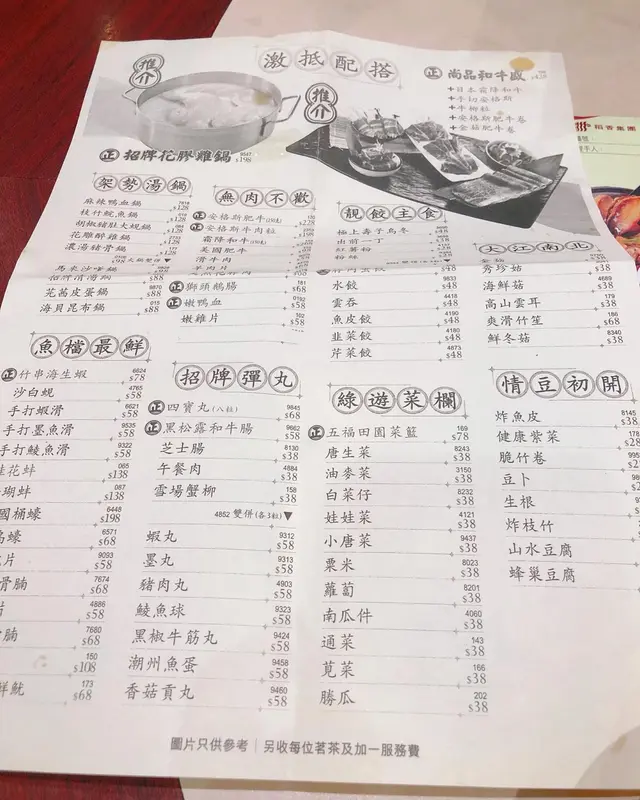 推介
激抵配搭
正 招牌花膠雞鍋 9547 $198
推介
正 尚品和牛盛
+日本霜降和牛
+手切安格斯
+牛柳粒
+安格斯肥牛卷
+金菇肥牛卷
稻香集團
架勢湯鍋
麻辣鴨血鍋 $128
枝竹魷魚鍋 $128
胡椒豬肚大蜆鍋
花雕醉雞鍋
濃湯豬骨鍋
馬來沙嗲鍋
芫茜皮蛋鍋 9870 $88
海貝昆布鍋 015 $88
無肉不歡
正 安格斯肥牛
正 安格斯牛肉粒
霜降和牛
美國肥牛
滑牛肉
正 獅頭鵝腸 181 $68
正 嫩鴨血 0192 $58
嫩雞片 102 $58
靚餃主食
極上壽子烏冬
出前一丁
紅薯粉
粉絲
水餃 9833 $48
雲吞 4418 $48
魚皮餃 4190 $48
韭菜餃 4180 $48
芹菜餃 4873 $48
大江南北
秀珍菇 $38
海鮮菇 4689 $38
高山雲耳 179 $38
爽滑竹笙 186 $68
鮮冬菇 8340 $38
魚檔最鮮
正 竹串海生蝦 6624 $78
沙白蜆 4765 $58
手打蝦滑 6621 $58
手打墨魚滑 9535 $58
手打鯪魚滑 9322 $58
桂花蚌 065 $138
珊瑚蚌 067 $138
國桶蠔 6448 $198
6571 $68
片 9093 $58
骨腩 7674 $68
4886 $58
腩 7680 $68
150 $108
鮮魷 173 $68
招牌彈丸
正 四寶丸(八粒) 9845 $68
正 黑松露和牛腸 9662 $58
芝士腸 8130 $38
午餐肉 4884 $38
雪場蟹柳 158 $38
4852 雙併(各3粒)▼
蝦丸 9312 $58
墨丸 9313 $58
豬肉丸 4903 $58
鯪魚球 9323 $58
黑椒牛筋丸 9424 $58
潮州魚蛋 9458 $58
香菇貢丸 9460 $58
綠遊菜欄
正 五福田園菜籃 169 $78
唐生菜 8243 $38
油麥菜 3150 $38
白菜仔 8232 $38
娃娃菜 4121 $38
小唐菜 9437 $38
粟米 8023 $38
蘿蔔 8201 $38
南瓜件 4060 $38
通菜 143 $38
莧菜 166 $38
勝瓜 202 $38
情豆初開
炸魚皮 8145 $38
健康紫菜
脆竹卷
豆卜
生根
炸枝竹
山水豆腐
蜂巢豆腐
圖片只供參考｜另收每位茗茶及加一服務費